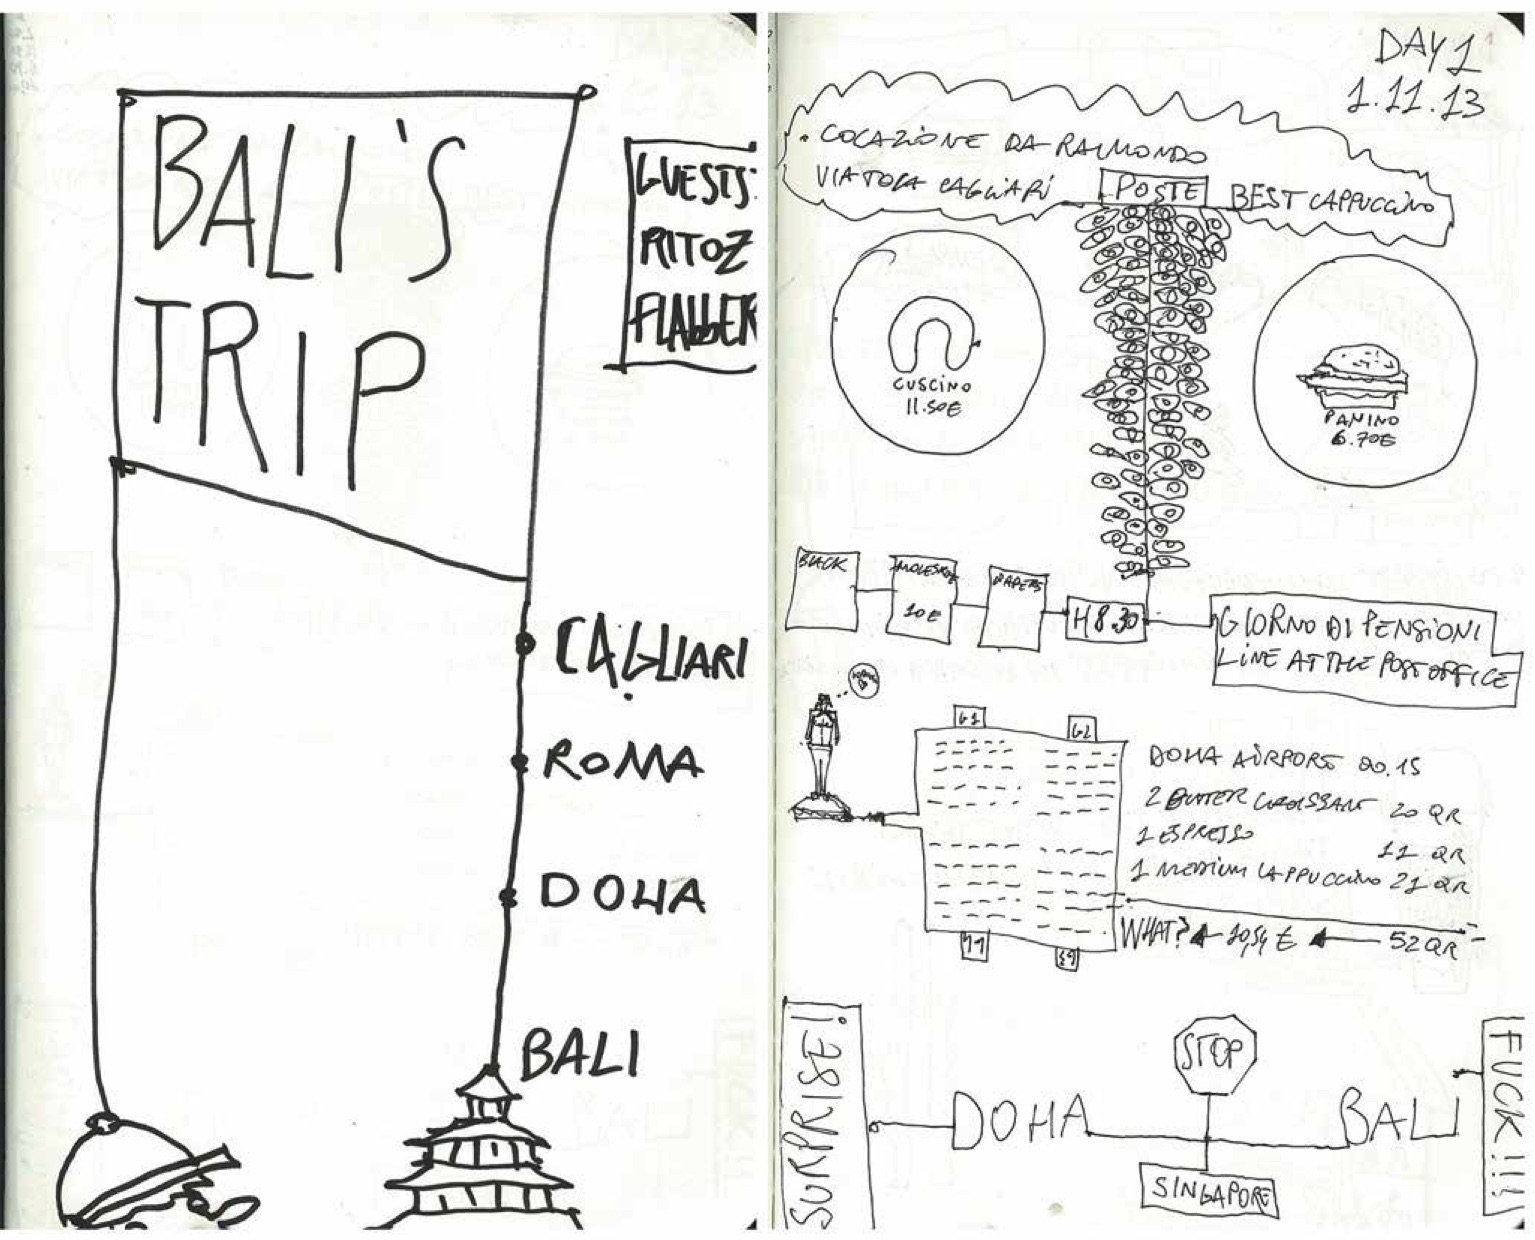 BALI'S
TRIP
GUESTS:
RITOZ
CAGLIARI
ROMA
DOHA
BALI
DAY 1
1.11.13
. COLAZIONE DA RAIMONDO
VIA TOLA CAGLIARI
POSTE
BEST CAPPUCCINO
CUSCINO
11.50E
PANINO
6.70E
BLACK
10E
H 8.30
GIORNO DI PENSIONI
LINE AT THE POST OFFICE
G1
G2
DOHA AIRPORT 20.15
2 BUTTER CROISSANT 20 QR
1 ESPRESSO 11 QR
1 MEDIUM CAPPUCCINO 21 QR
WHAT? 10,54 E 52 QR
SURPRISE!
DOHA
STOP
SINGAPORE
BALI
FUCK!!!